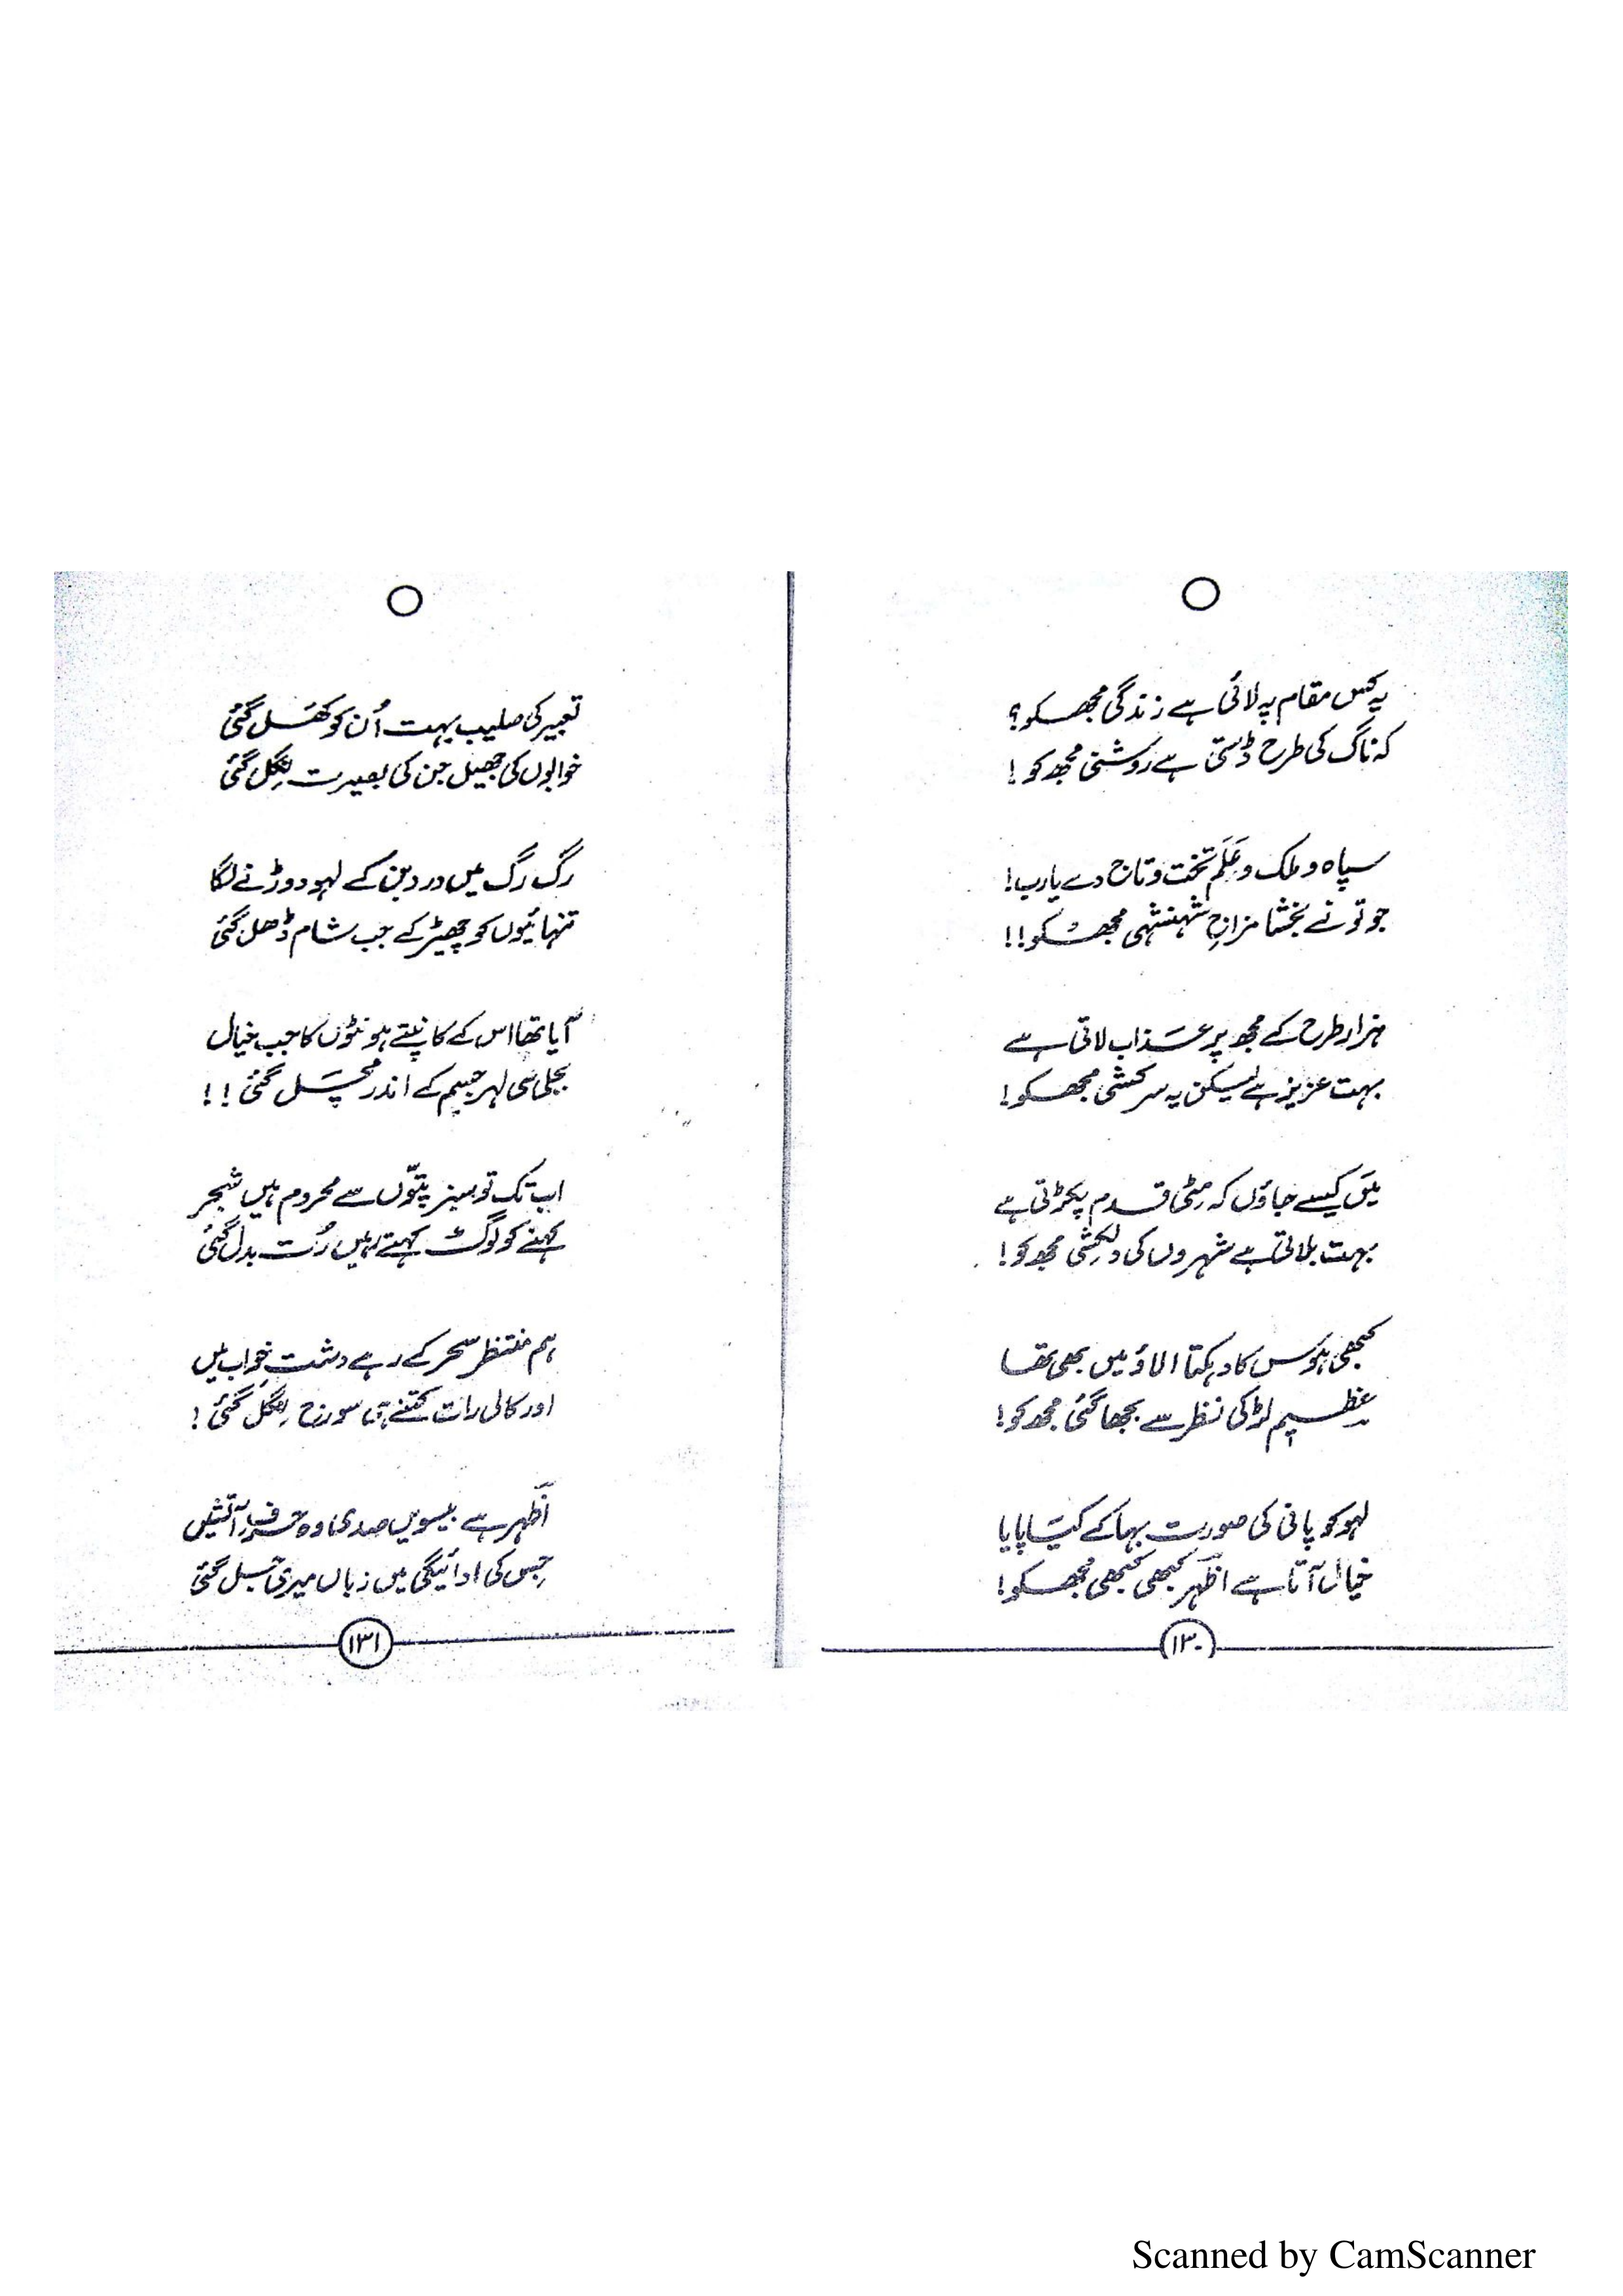 یہ کس مقام پہ لائی ہے زندگی مجھ کو؟
کہ ناگ کی طرح ڈستی ہے روشنی مجھ کو!
سپاہ و ملک و عَلَم تخت و تاج دے یارب!
جو تو نے بخشا مزاجِ شہنشہی مجھ کو!!
ہزار طرح کے مجھ پر عذاب لاتی ہے
بہت عزیز ہے لیکن یہ سرکشی مجھ کو!
میں کیسے جاؤں کہ مِٹی قدم پکڑتی ہے
بہت بلاتی ہے شہروں کی دلکشی مجھ کو!
کبھی ہَوس کا دہکتا الاؤ میں بھی تھا
عظیم لڑکی نظر سے بجھا گئی مجھ کو!
لہو کو پانی کی صورت بہا کے کیا پایا
خیال آتا ہے اظہر کبھی کبھی مجھ کو!
۱۳۰
تعبیر کی صلیب بہت اُن کو کھَل گئی
خوابوں کی جھیل جن کی بصیرت نِگل گئی
رگ رگ میں درد بن کے لہو دوڑنے لگا
تنہائیوں کو چھیڑ کے جب شام ڈھل گئی
آیا تھا اس کے کانپتے ہونٹوں کا جب خیال
بجلی سی لہر جسم کے اندر مچَل گئی!!
اب تک تو سبز پتّوں سے محروم ہیں شجر
کہنے کو لوگ کہتے ہیں رُت بدل گئی
ہم منتظر سحر کے رہے دشتِ خواب میں
اور کالی رات کتنے ہی سورج نِگل گئی!
اظہر ہے بیسویں صدی وہ حرفِ آتشیں
جِس کی ادائیگی میں زباں میری جل گئی
۱۳۱
Scanned by CamScanner